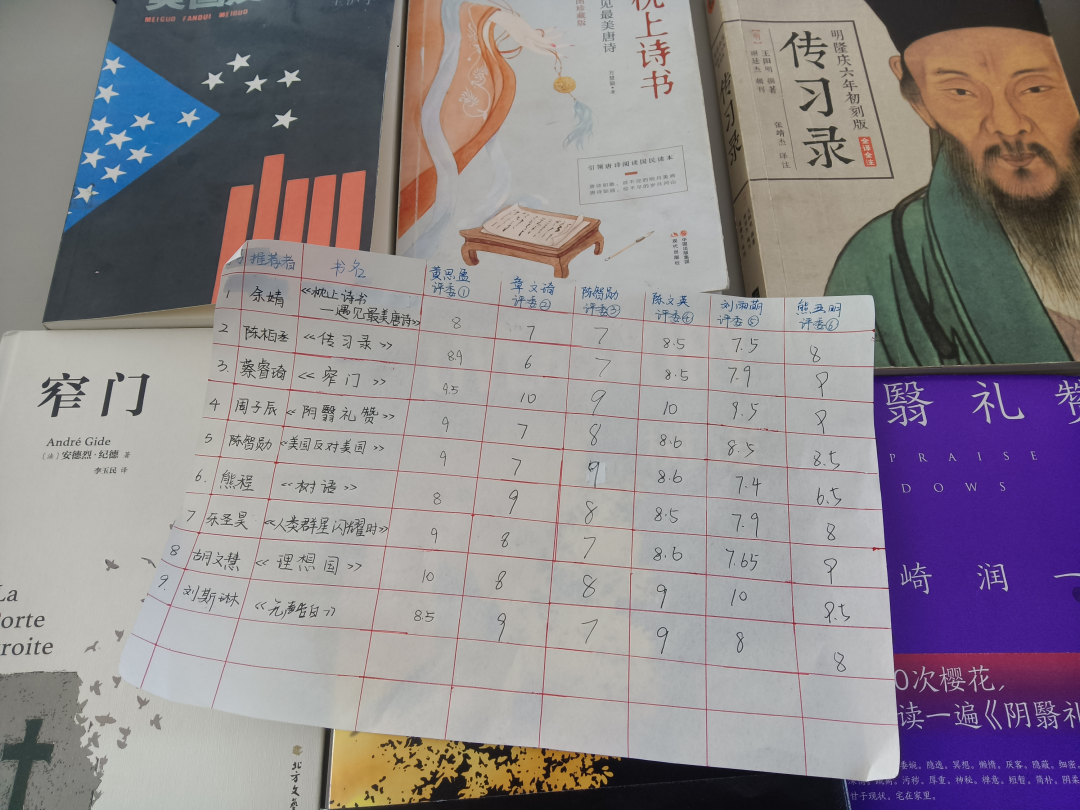 MEIGUO FANDUI MEIGUO
枕上诗书
见最美唐诗
引领唐诗阅读国民读本
明隆庆六年初刻版
传习录
[明] 王阳明 撰著
张靖杰 译注
全译全注
传习录
推荐者 书名 黄思孟 章文琦 陈智勋 陈文昊 刘雨萌 熊立明
评委① 评委② 评委③ 评委④ 评委⑤ 评委⑥
1 余婧 《枕上诗书
—遇见最美唐诗》 8 7 7 8.5 7.5 8
2 陈柏丞 《传习录》 8.9 6 7 8.5 7.9 9
3. 蔡睿琦 《窄门》 9.5 10 9 10 9.5 9
4 周子辰 《阴翳礼赞》 9 7 8 8.6 8.5 8.5
5 陈智勋 《美国反对美国》 9 7 9 8.6 7.4 6.5
6. 熊程 《树语》 8 9 8 8.5 7.9 8
7 乐圣昊 《人类群星闪耀时》 9 8 7 8.6 7.65 9
8 胡文慧 《理想国》 10 8 8 9 10 9.5
9. 刘斯琳 《无声告白》 8.5 9 7 9 8 8
窄门
André Gide
〔法〕安德烈·纪德 著
李玉民 译
La
Porte
roite
北方文艺
翳礼赞
PRAISE
DOWS
崎润一
0次樱花,
读一遍《阴翳礼
甘于现状。宅在家里。